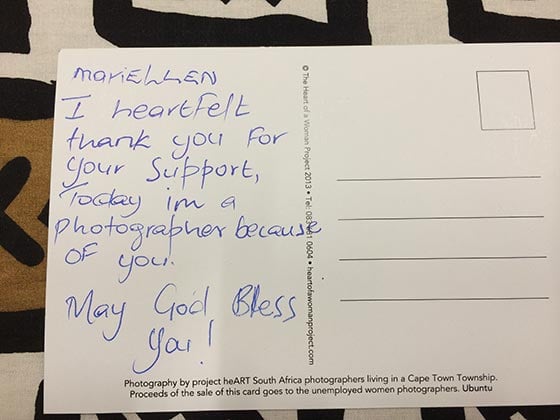 mariELLEN
I heartfelt
thank you for
your Support,
Today im a
photographer because
OF you.
May God Bless
You!
© The Heart of a Woman Project 2013 • Tel: 0604 • heartofawomanproject.com
Photography by project heART South Africa photographers living in a Cape Town Township.
Proceeds of the sale of this card goes to the unemployed women photographers. Ubuntu